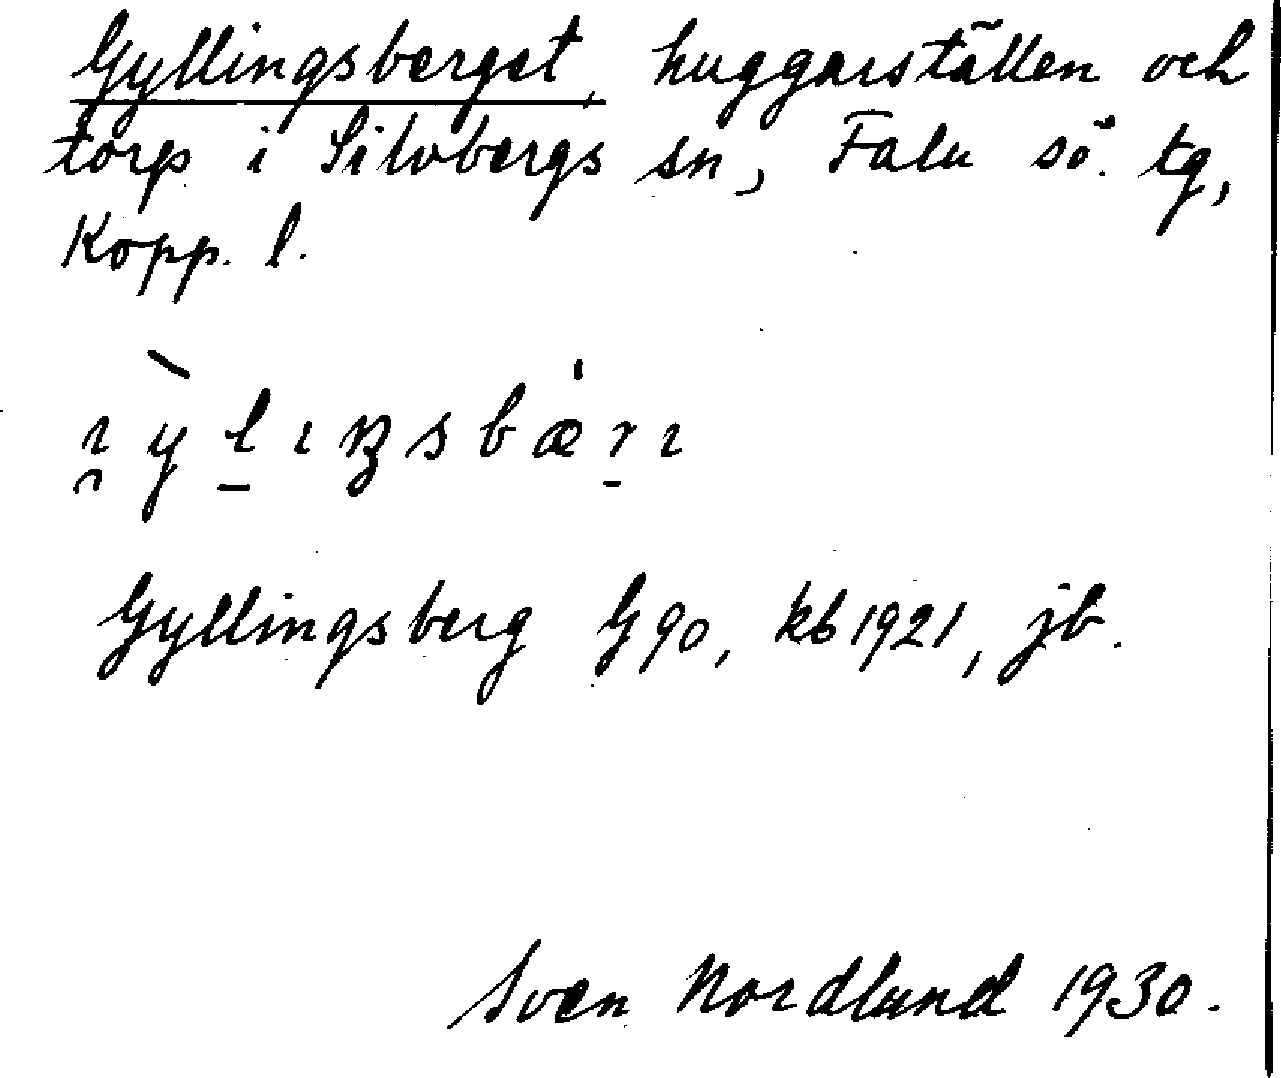 Gyllingsberget, huggarställen och
torp i Silvbergs sn, Falu sö. tg,
Kopp. l.
Gyllingsberg G 90, kb 1921, jb.
Sven Nordlund 1930.